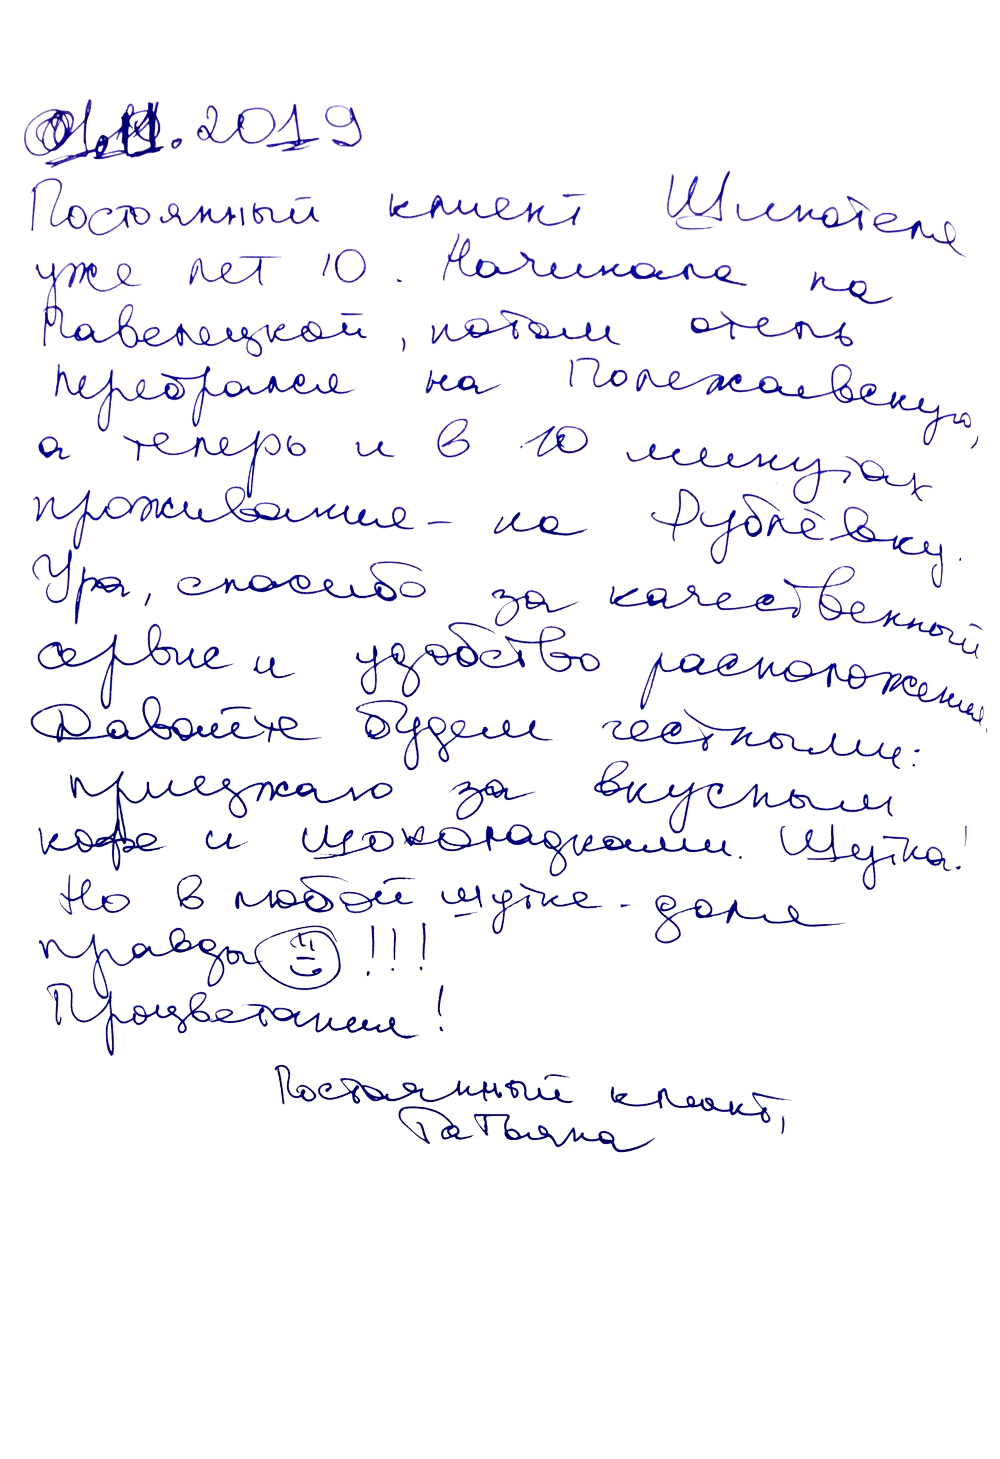 01.11.2019
Постоянный клиент Шинотеля
уже лет 10. Начинала на
Павелецкой, потом отель
перебрался на Полежаевскую,
а теперь и в 10 минутах
проживания - на Рублёвку.
Ура, спасибо за качественный
сервис и удобство расположения.
Давайте будем честными:
приезжаю за вкусным
кофе и шоколадками. Шутка!
Но в любой шутке - доля
правды !!!
Процветания!
Постоянный клиент,
Татьяна